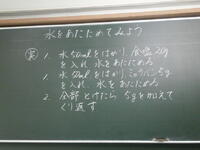 水をあたためてみよう
実 1. 水50mlをはかり、食塩20g
を入れ、水をあたためる
1. 水50mlをはかり、ミョウバン5g
を入れ、水をあたためる
2. 全部とけたら 5gを加えて
くり返す